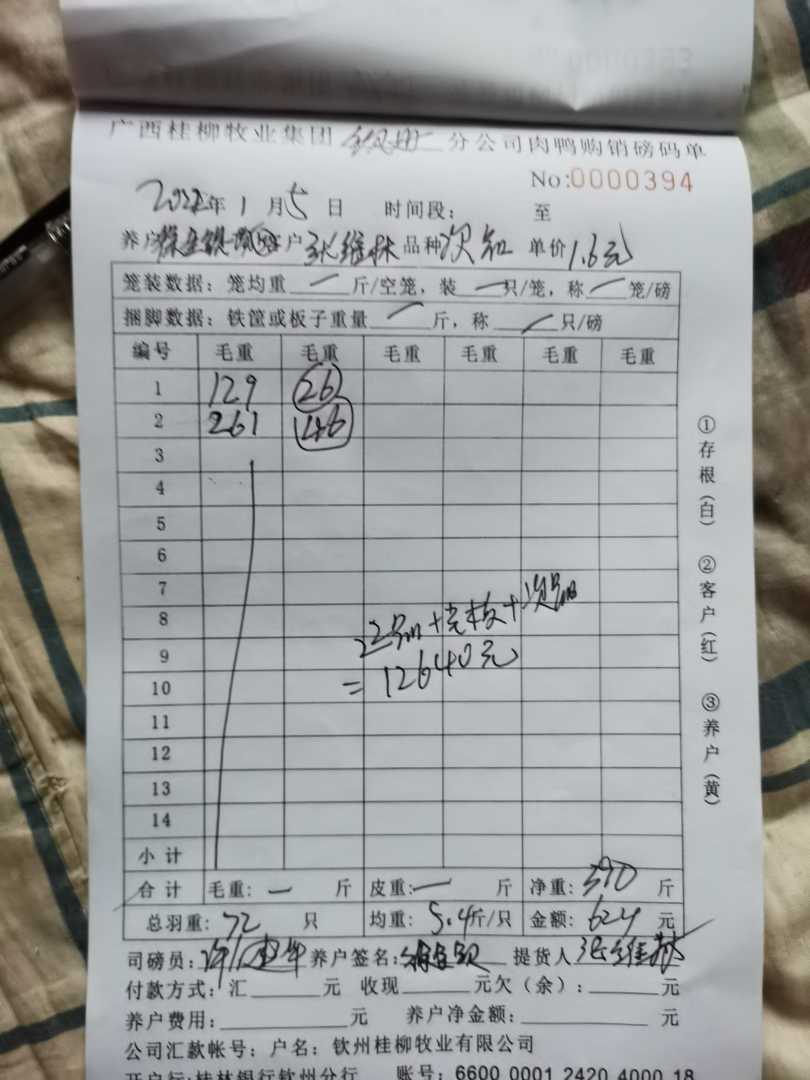 广西桂柳牧业集团 分公司肉鸭购销磅码单
No:0000394
2022年1月5日 时间段： 至
养户 客户 张维林 品种 次品 单价 1.6元
笼装数据：笼均重 — 斤/空笼，装 — 只/笼，称 — 笼/磅
捆脚数据：铁筐或板子重量 — 斤，称 — 只/磅
编号 毛重 毛重 毛重 毛重 毛重 毛重
1 129 26
2 261 46
3
4
5
6
7
8
9
10
11
12
13
14
小计
+次品
=12640元
合计 毛重：— 斤 皮重：— 斤 净重：390 斤
总羽重：72 只 均重：5.4斤/只 金额：624 元
司磅员： 养户签名： 提货人 张维林
付款方式：汇 元 收现 元欠（余）： 元
养户费用： 元 养户净金额： 元
公司汇款帐号：户名：钦州桂柳牧业有限公司
开户行:桂林银行钦州分行 账号：6600 0001 2420 4000 18
①存根（白） ②客户（红） ③养户（黄）